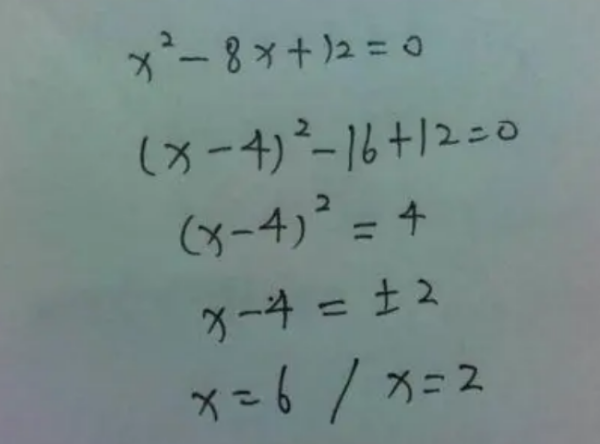 x² - 8x + 12 = 0
(x - 4)² - 16 + 12 = 0
(x - 4)² = 4
x - 4 = ± 2
x = 6 / x = 2